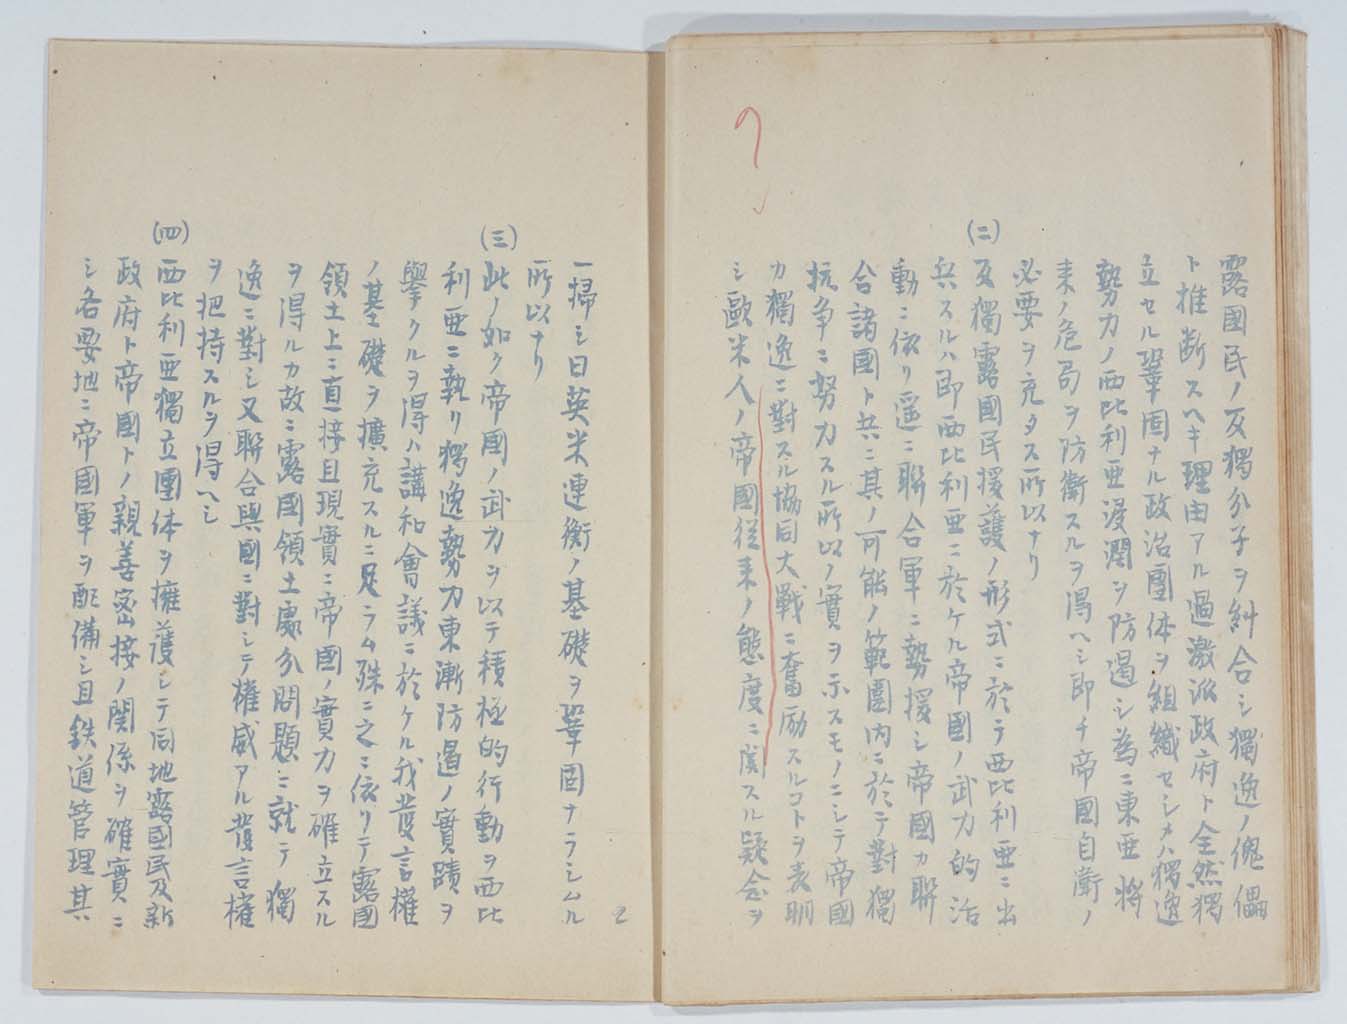 露國民ノ反獨分子ヲ糾合シ獨逸ノ傀儡
ト推断スヘキ理由アル過激派政府ト全然獨
立セル鞏固ナル政治團体ヲ組織セシメハ獨逸
勢力ノ西比利亜浸潤ヲ防遏シ為ニ東亜将
来ノ危局ヲ防衛スルヲ得ヘシ即チ帝國自衛ノ
必要ヲ充タス所以ナリ
(二)
反獨露國民援護ノ形式ニ於テ西比利亜ニ出
兵スルハ即西比利亜ニ於ケル帝國ノ武力的活
動ニ依リ遥ニ聯合軍ニ勢援シ帝國カ聯
合諸國ト共ニ其ノ可能ノ範圍内ニ於テ對獨
抗争ニ努力スル所以ノ實ヲ示スモノニシテ帝國
カ獨逸ニ對スル協同大戰ニ奮励スルコトヲ表明
シ歐米人ノ帝國從来ノ態度ニ関スル疑念ヲ
一掃シ日英米連衡ノ基礎ヲ鞏固ナラシムル
所以ナリ
(三)
此ノ如ク帝國ノ武力ヲ以テ積極的行動ヲ西比
利亜ニ執リ獨逸勢力東漸防遏ノ實蹟ヲ
擧クルヲ得ハ講和會議ニ於ケル我發言權
ノ基礎ヲ擴充スルニ足ラム殊ニ之ニ依リテ露國
領土上ニ直接且現實ニ帝國ノ實力ヲ確立スル
ヲ得ルカ故ニ露國領土處分問題ニ就テ獨
逸ニ對シ又聯合與國ニ對シテ權威アル發言權
ヲ把持スルヲ得ヘシ
(四)
西比利亜獨立團体ヲ擁護シテ同地露國民及新
政府ト帝國トノ親善密接ノ関係ヲ確實ニ
シ各要地ニ帝國軍ヲ配備シ且鉄道管理其
2